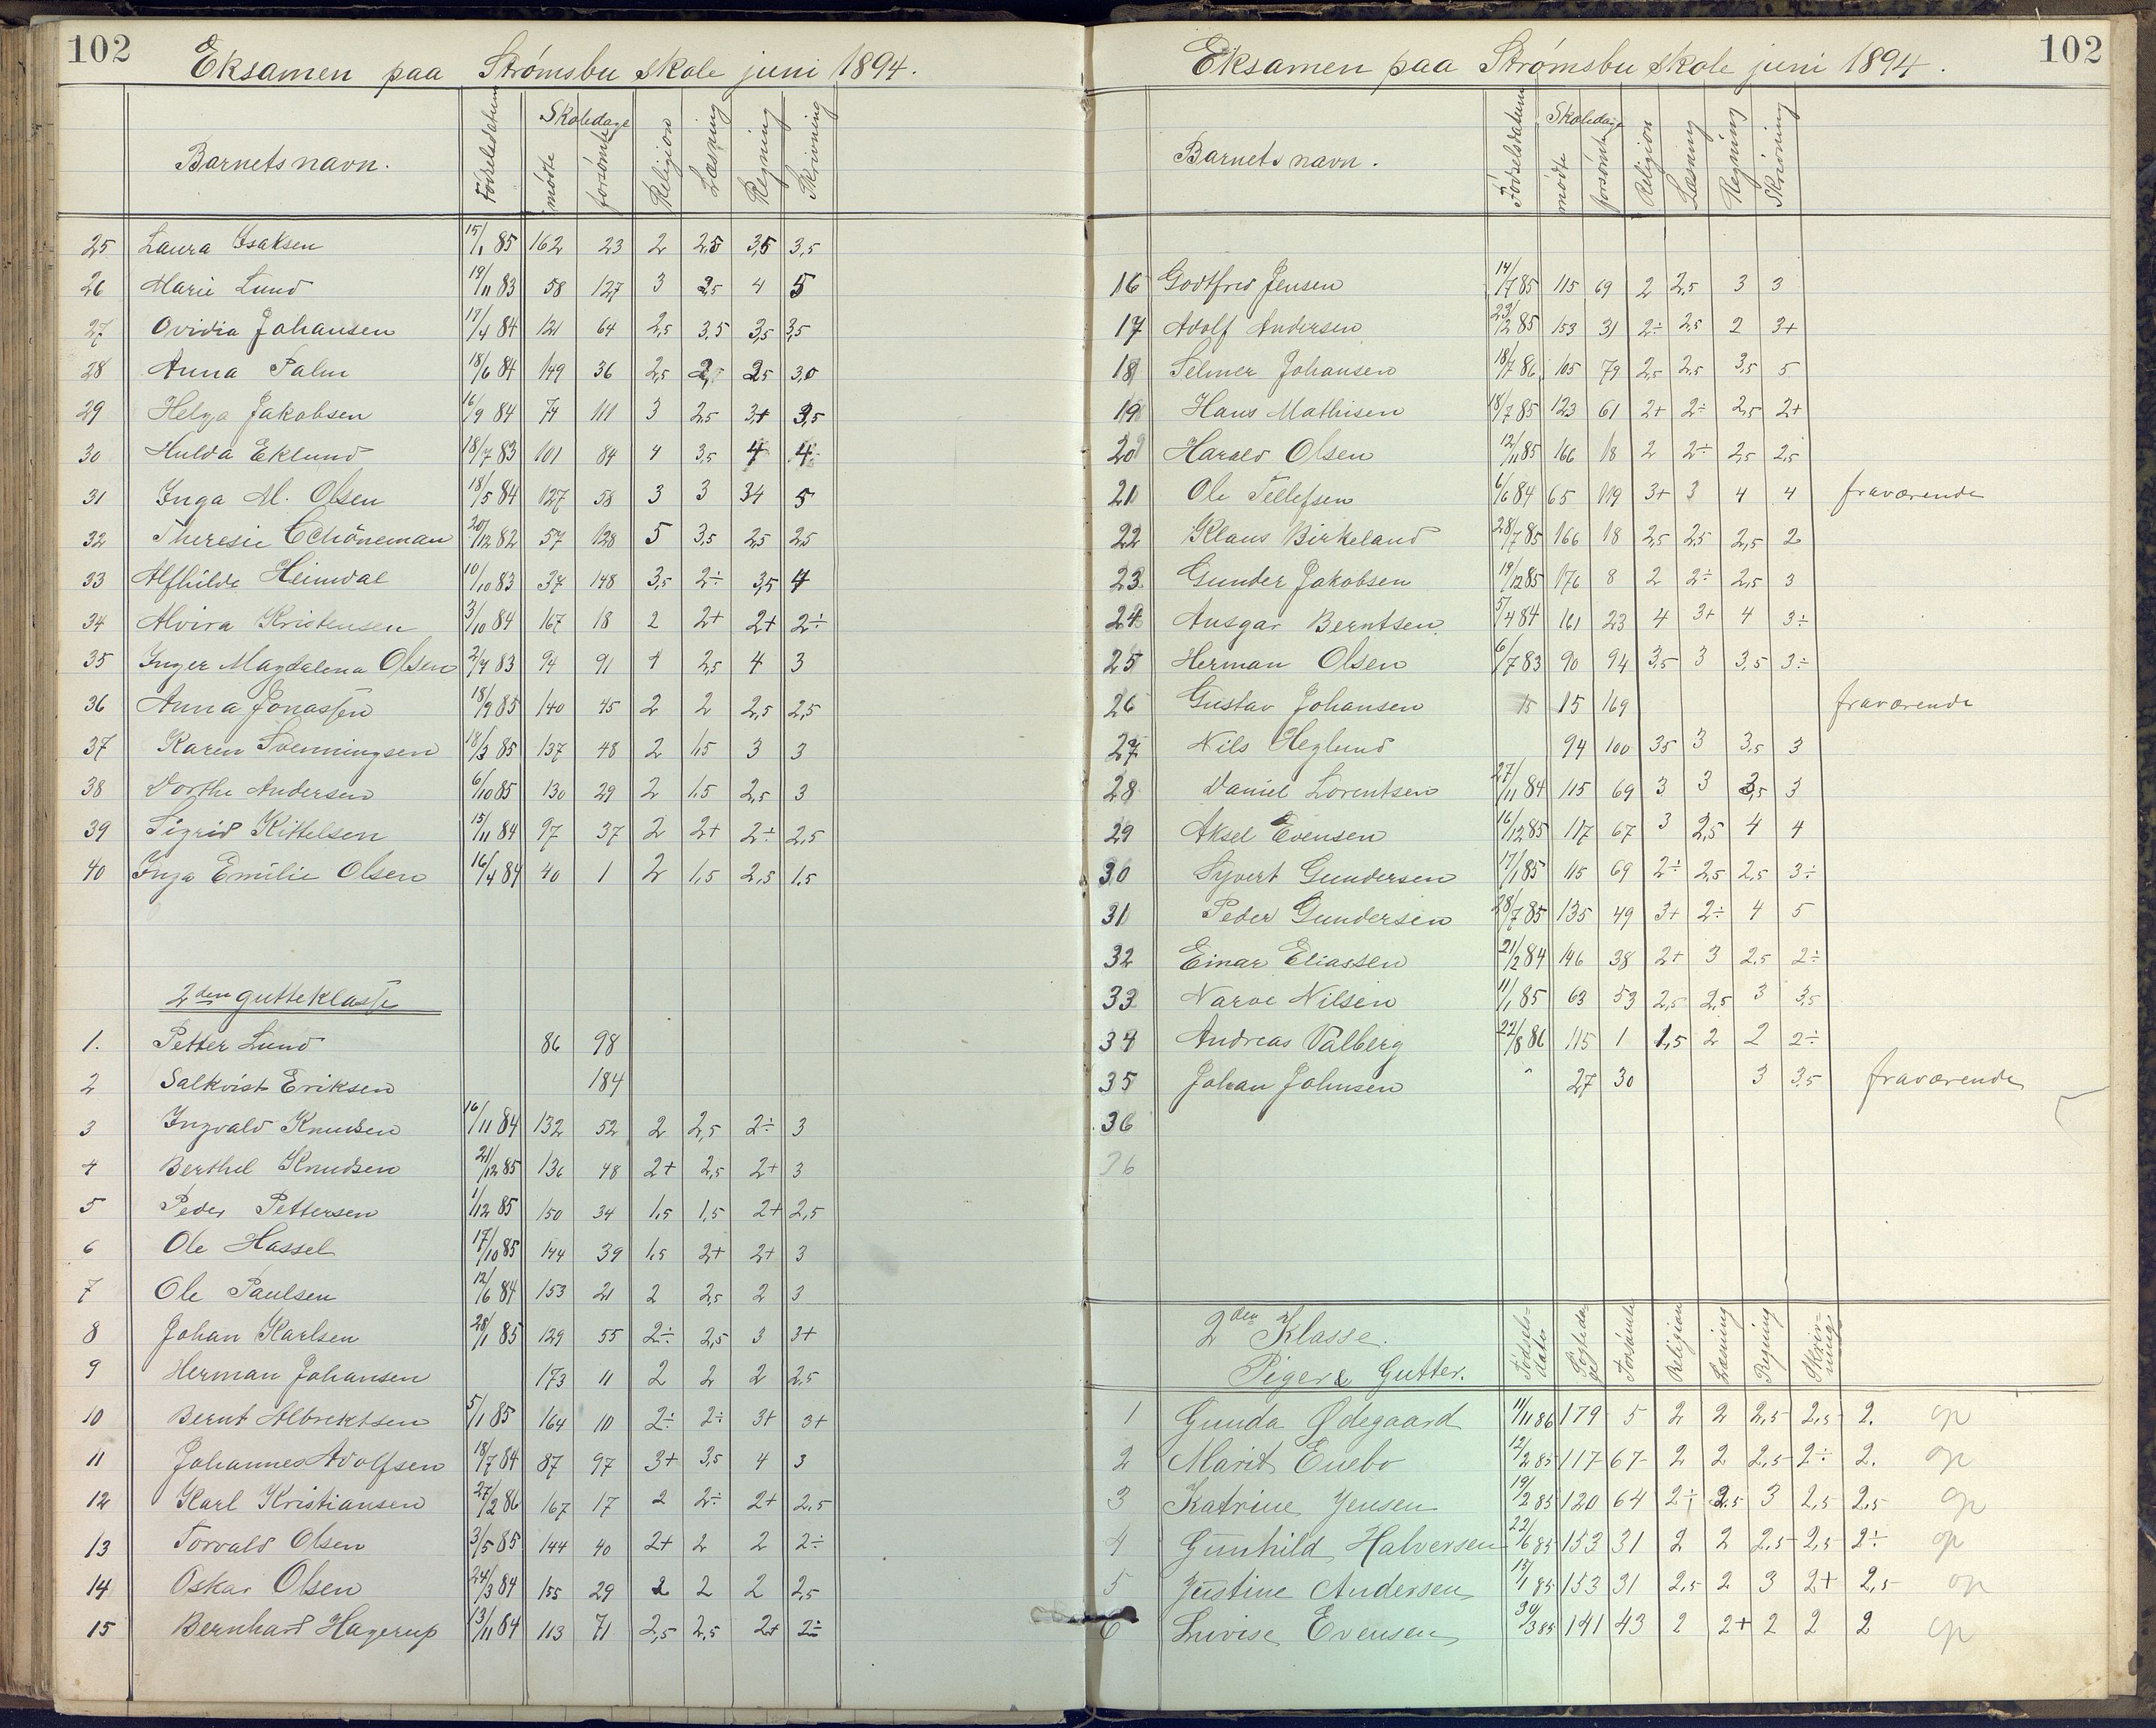 102
Eksamen paa Strømsbu skole juni 1894.
Barnets navn. Fødselsdatum Skoledage mødte forsømte Religion Læsning Regning Skrivning
25 Laura Isaksen 15/1 85 162 23 2 2,5 3,5 3,5
26 Marie Lund 19/11 83 58 127 3 2,5 4 5
27 Ovidia Johansen 17/4 84 121 64 2,5 3,5 3,5 3,5
28 Anna Palm 18/6 84 149 36 2,5 2,5 2,5 3,0
29 Helga Jakobsen 16/9 84 74 111 3 2,5 3+ 3,5
30 Hulda Eklund 18/7 83 101 84 4 3,5 4 4
31 Inga M. Olsen 18/5 84 127 58 3 3 34 5
32 Theresie Schöneman 20/12 82 57 128 5 3,5 2,5 2,5
33 Alfhilde Heimdal 10/10 83 37 148 3,5 2÷ 3,5 4
34 Alvira Kristensen 3/10 84 167 18 2 2+ 2+ 2÷
35 Inger Magdalena Olsen 2/4 83 94 91 4 2,5 4 3
36 Anna Jonassen 18/9 85 140 45 2 2 2,5 2,5
37 Karen Svenningsen 18/3 85 137 48 2 1,5 3 3
38 Dorthe Andersen 6/10 85 130 29 2 1,5 2,5 3
39 Sigrid Kittelsen 15/11 84 97 37 2 2+ 2÷ 2,5
40 Inga Emilie Olsen 16/4 84 40 1 2 1,5 2,5 1,5
2den gutteklasse
1. Petter Lund 86 98
2 Salkvist Eriksen 184
3 Ingvald Knudsen 16/11 84 132 52 2 2,5 2÷ 3
4 Berthel Knudsen 21/12 85 136 48 2+ 2,5 2+ 3
5 Peder Pettersen 1/12 85 150 34 1,5 1,5 2+ 2,5
6 Ole Hassel 17/10 85 144 39 1,5 2+ 2+ 3
7 Ole Paulsen 12/6 84 153 21 2 2,5 2 3
8 Johan Karlsen 28/1 85 129 55 2÷ 2,5 3 3+
9 Herman Johansen 173 11 2 2 2 2,5
10 Bernt Albrektsen 5/1 85 164 10 2÷ 2÷ 3+ 3+
11 Johannes Adolfsen 18/7 84 87 97 3+ 3,5 4 3
12 Karl Kristiansen 27/2 86 167 17 2 2÷ 2+ 2,5
13 Torvald Olsen 3/5 85 144 40 2+ 2 2 2÷
14 Oskar Olsen 24/3 84 155 29 2 2 2 2,5
15 Bernhard Hagerup 13/11 84 113 71 2,5 2,5 2+ 2÷
102
Eksamen paa Strømsbu skole juni 1894.
Barnets navn. Fødselsdatum Skoledage mødte forsømte Religion Læsning Regning Skrivning
16 Godtfred Jensen 14/7 85 115 69 2 2,5 3 3
17 Adolf Andersen 23/2 85 153 31 2÷ 2,5 2 3+
18 Selmer Johansen 18/7 86 105 79 2,5 2,5 3,5 5
19 Hans Mathisen 18/7 85 123 61 2+ 2÷ 2,5 2+
20 Harald Olsen 12/11 85 166 18 2 2÷ 2,5 2,5
21 Ole Tellefsen 6/6 84 65 119 3+ 3 4 4 fraværende
22 Klaus Birkeland 28/7 85 166 18 2,5 2,5 2,5 2
23 Gunder Jakobsen 19/12 85 176 8 2 2÷ 2,5 3
24 Ansgar Berntsen 5/4 84 161 23 4 3+ 4 3÷
25 Herman Olsen 6/7 83 90 94 3,5 3 3,5 3÷
26 Gustav Johansen 15 15 169 fraværende
27 Nils Heglund 94 100 35 3 3,5 3
28 Daniel Lorentsen 27/11 84 115 69 3 3 3,5 3
29 Aksel Evensen 16/12 85 117 67 3 2,5 4 4
30 Syvert Gundersen 17/1 85 115 69 2÷ 2,5 2,5 3÷
31 Peder Gundersen 28/7 85 135 49 3+ 2÷ 4 5
32 Einar Eliassen 21/2 84 146 38 2+ 3 2,5 2÷
33 Narve Nilsen 11/1 85 63 53 2,5 2,5 3 3,5
34 Andreas Valberg 22/8 86 115 1 1,5 2 2 2÷
35 Johan Johnsen " 27 30 3 3,5 fraværende
36
36
2den Klasse.
Piger & Gutter. Fødselsdato Forsømte Religion Læsning Regning Skrivning
1 Gunda Ødegaard 11/11 86 179 5 2 2 2,5 2,5 2. op
2 Marit Enebo 12/2 85 117 67 2 2 2,5 2÷ 2. op
3 Katrine Jensen 19/2 85 120 64 2÷ 2,5 3 2,5 2,5 op
4 Gunhild Halvorsen 22/6 85 153 31 2 2 2,5 2,5 2÷ op
5 Justine Andersen 13/1 85 153 31 2,5 2 3 2+ 2,5 op
6 Lovise Evensen 30/3 85 141 43 2 2+ 2 2 2 op